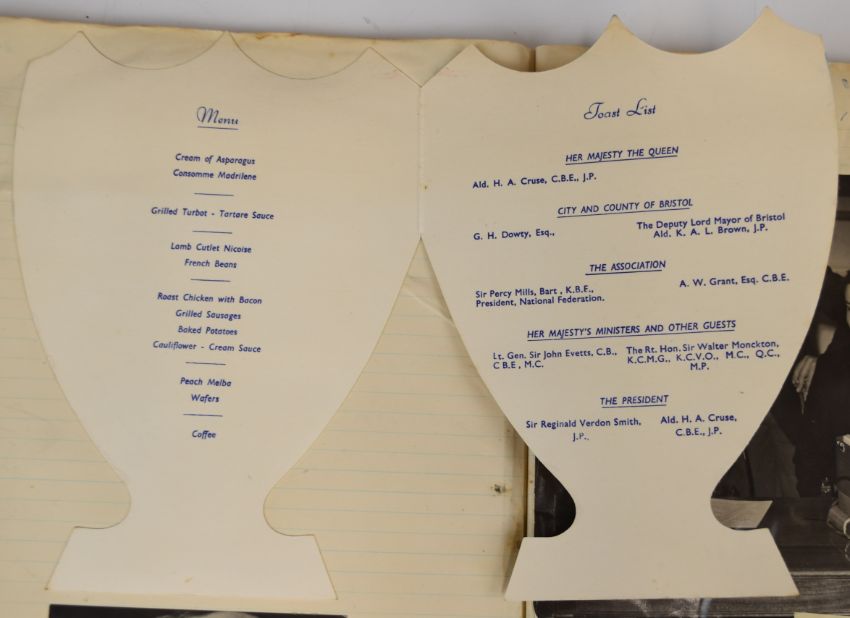 Menu
Cream of Asparagus
Consomme Madrilene
Grilled Turbot - Tartare Sauce
Lamb Cutlet Nicoise
French Beans
Roast Chicken with Bacon
Grilled Sausages
Baked Potatoes
Cauliflower - Cream Sauce
Peach Melba
Wafers
Coffee
Toast List
HER MAJESTY THE QUEEN
Ald. H. A. Cruse, C.B.E., J.P.
CITY AND COUNTY OF BRISTOL
G. H. Dowty, Esq.,
The Deputy Lord Mayor of Bristol
Ald. K. A. L. Brown, J.P.
THE ASSOCIATION
Sir Percy Mills, Bart , K.B.E.,
President, National Federation.
A. W. Grant, Esq. C.B.E.
HER MAJESTY'S MINISTERS AND OTHER GUESTS
Lt. Gen. Sir John Evetts, C.B.,
C B.E , M.C.
The Rt. Hon. Sir Walter Monckton,
K.C.M.G., K.C.V.O., M.C., Q.C.,
M.P.
THE PRESIDENT
Sir Reginald Verdon Smith,
J.P.,
Ald. H. A. Cruse,
C.B.E., J.P.